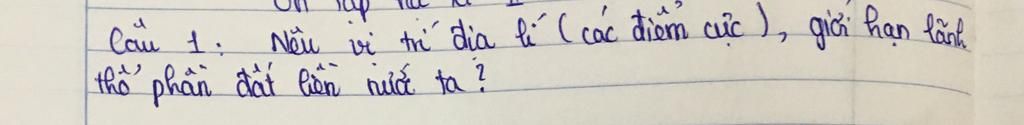 Câu 1: Nêu vị trí địa lí (các điểm cực), giới hạn lãnh
thổ phần đất liền nước ta?